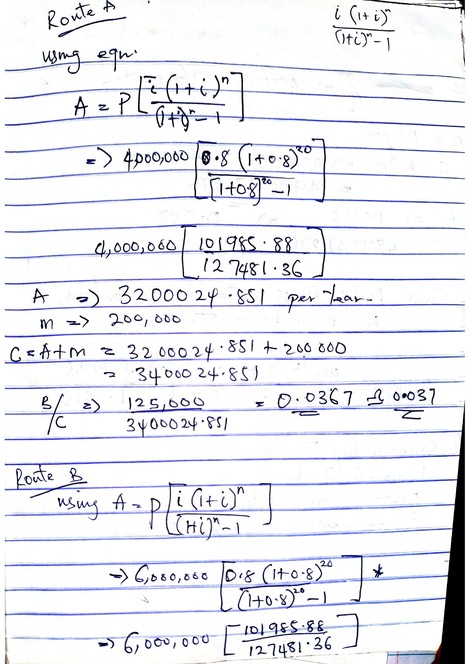 Route A
i (1+i)^n
(1+i)^n - 1
using eqn.
A = P [ i (1+i)^n / (1+i)^n - 1 ]
=> 4,000,000 [ 0.8 (1+0.8)^20 / [1+0.8]^20 - 1 ]
4,000,000 [ 101985.88 / 127481.36 ]
A => 3200024.851 per Year.
m => 200,000
C = A+m = 3200024.851 + 200000
= 3400024.851
B/C => 125,000 / 3400024.851 = 0.0367 ≏ 0.037
Route B
using A = P [ i (1+i)^n / (1+i)^n - 1 ]
=> 6,000,000 [ 0.8 (1+0.8)^20 / (1+0.8)^20 - 1 ] *
=> 6,000,000 [ 101985.88 / 127481.36 ]